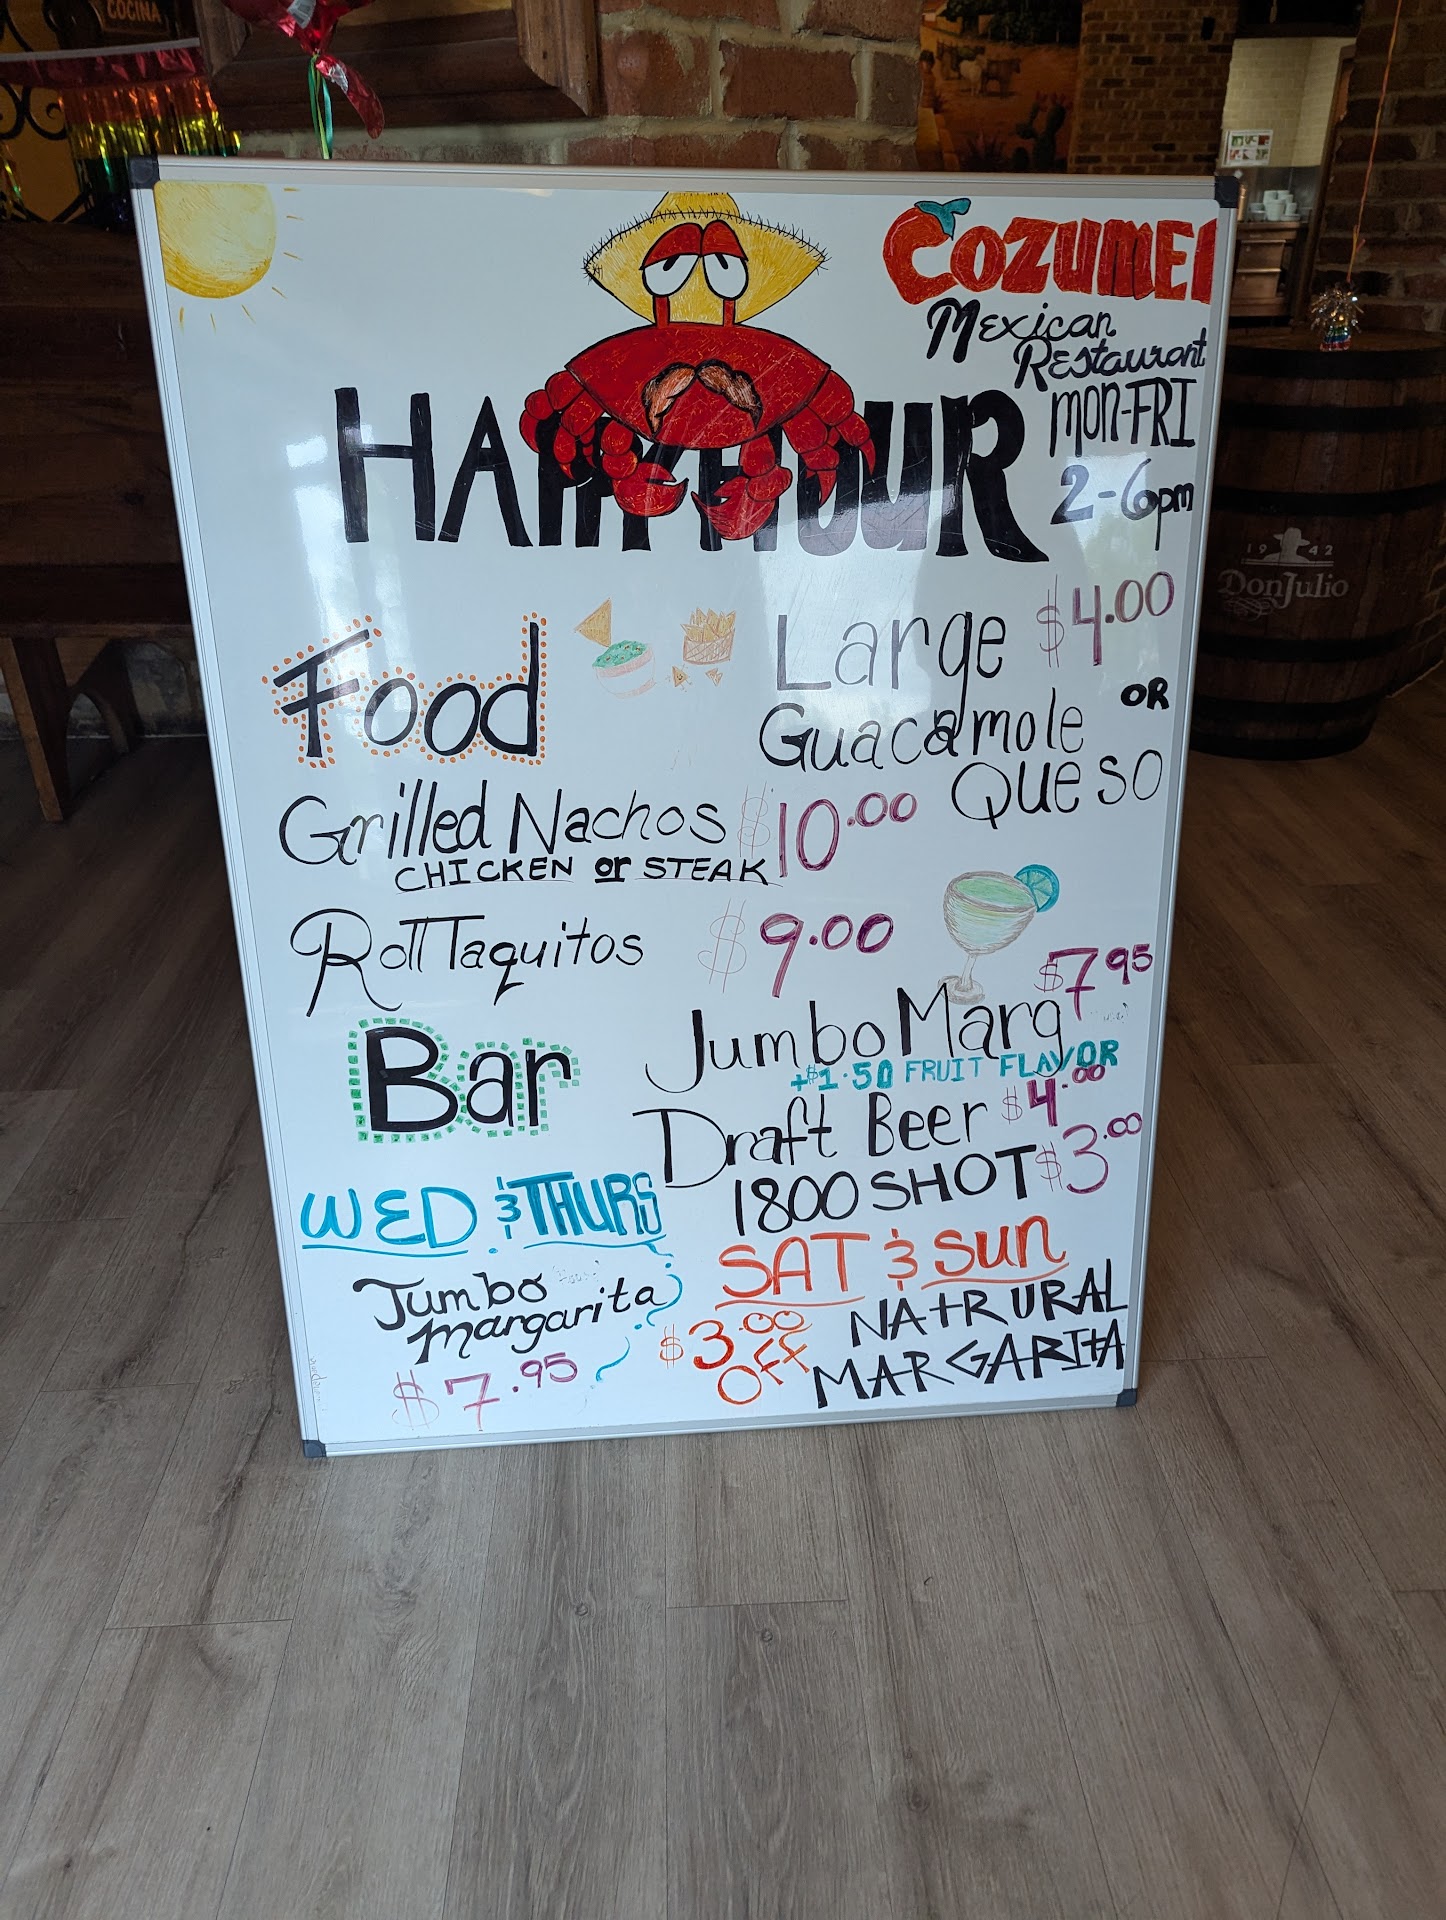 COCINA
COZUMEL
Mexican
Restaurant
HAPPY HOUR
MON-FRI
2-6pm
1942
Don Julio
Food
Large $4.00
Guacamole OR
Queso
Grilled Nachos $10.00
CHICKEN or STEAK
Roll Taquitos $9.00
Bar
Jumbo Marg $7.95
+$1.50 FRUIT FLAVOR
Draft Beer $4.00
1800 SHOT $3.00
WED & THURS
Jumbo "House"
margarita
$7.95
SAT & SUN
$3.00 OFF
NATRURAL
MARGARITA